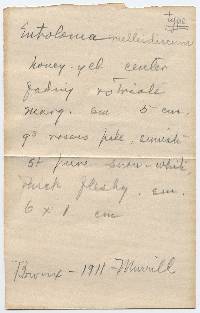 type
Entoloma melleidiscum
honey-yel. center
fading to
marg. 6m 5 cm.
gs. roseis
st pure snow-white
thick fleshy. em.
6 x 1 cm
Bronx - 1911 - Murrill